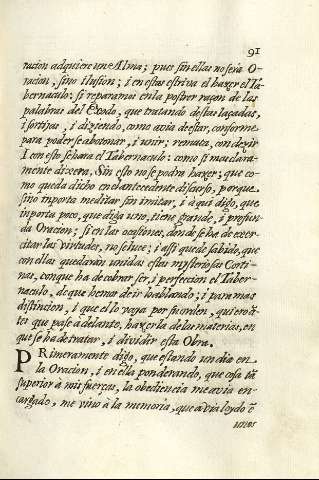 91
racion adquiere un Alma; pues sin ellas no sera O-
racion, sino Ilusion; i en estas estriva el hazer el Ta-
bernaculo: si reparamos en la postrer razon de las
palabras del Exodo, que tratando destas laçadas,
i sortijas, i diziendo, como avia de estar, conforme
para poderse abotonar, i unir; remata, con dezir
I con esto se hara el Tabernaculo: como si mas clara-
mente dixera, Sin esto no se podra hazer; que co-
mo queda dicho en el antecedente discurso, porque
sino importa meditar sin imitar, i à qui digo, que
inporta poco, que diga uno, tiene grande, i profun
da Oracion; si en las ocasiones, donde se ha de exer-
citar las virtudes, no se luce; i assi quede sabido, que
con ellas quedarán unidas estas mysteriosas Corti-
nas, conque ha de cobrar ser, i perfeccion el Taber-
naculo, de que hemos de ir hablando; i para mas
distincion, i que ello vaya por su orden, quiero ã-
tes que pase adelante, hazerla de las materias, en
que se ha de tratar, i dividir esta Obra.
PRimeramente digo, que estando un dia en
la Oracion, i en ella ponderando, que cosa tã
superior à mis fuerças, la obediencia me avia en-
cargado, me vino à la memoria, que avia loydo ẽ
unos